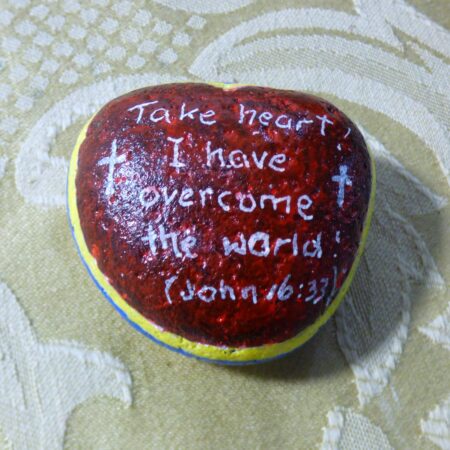 Take heart!
I have
overcome
the world!
(John 16:33)